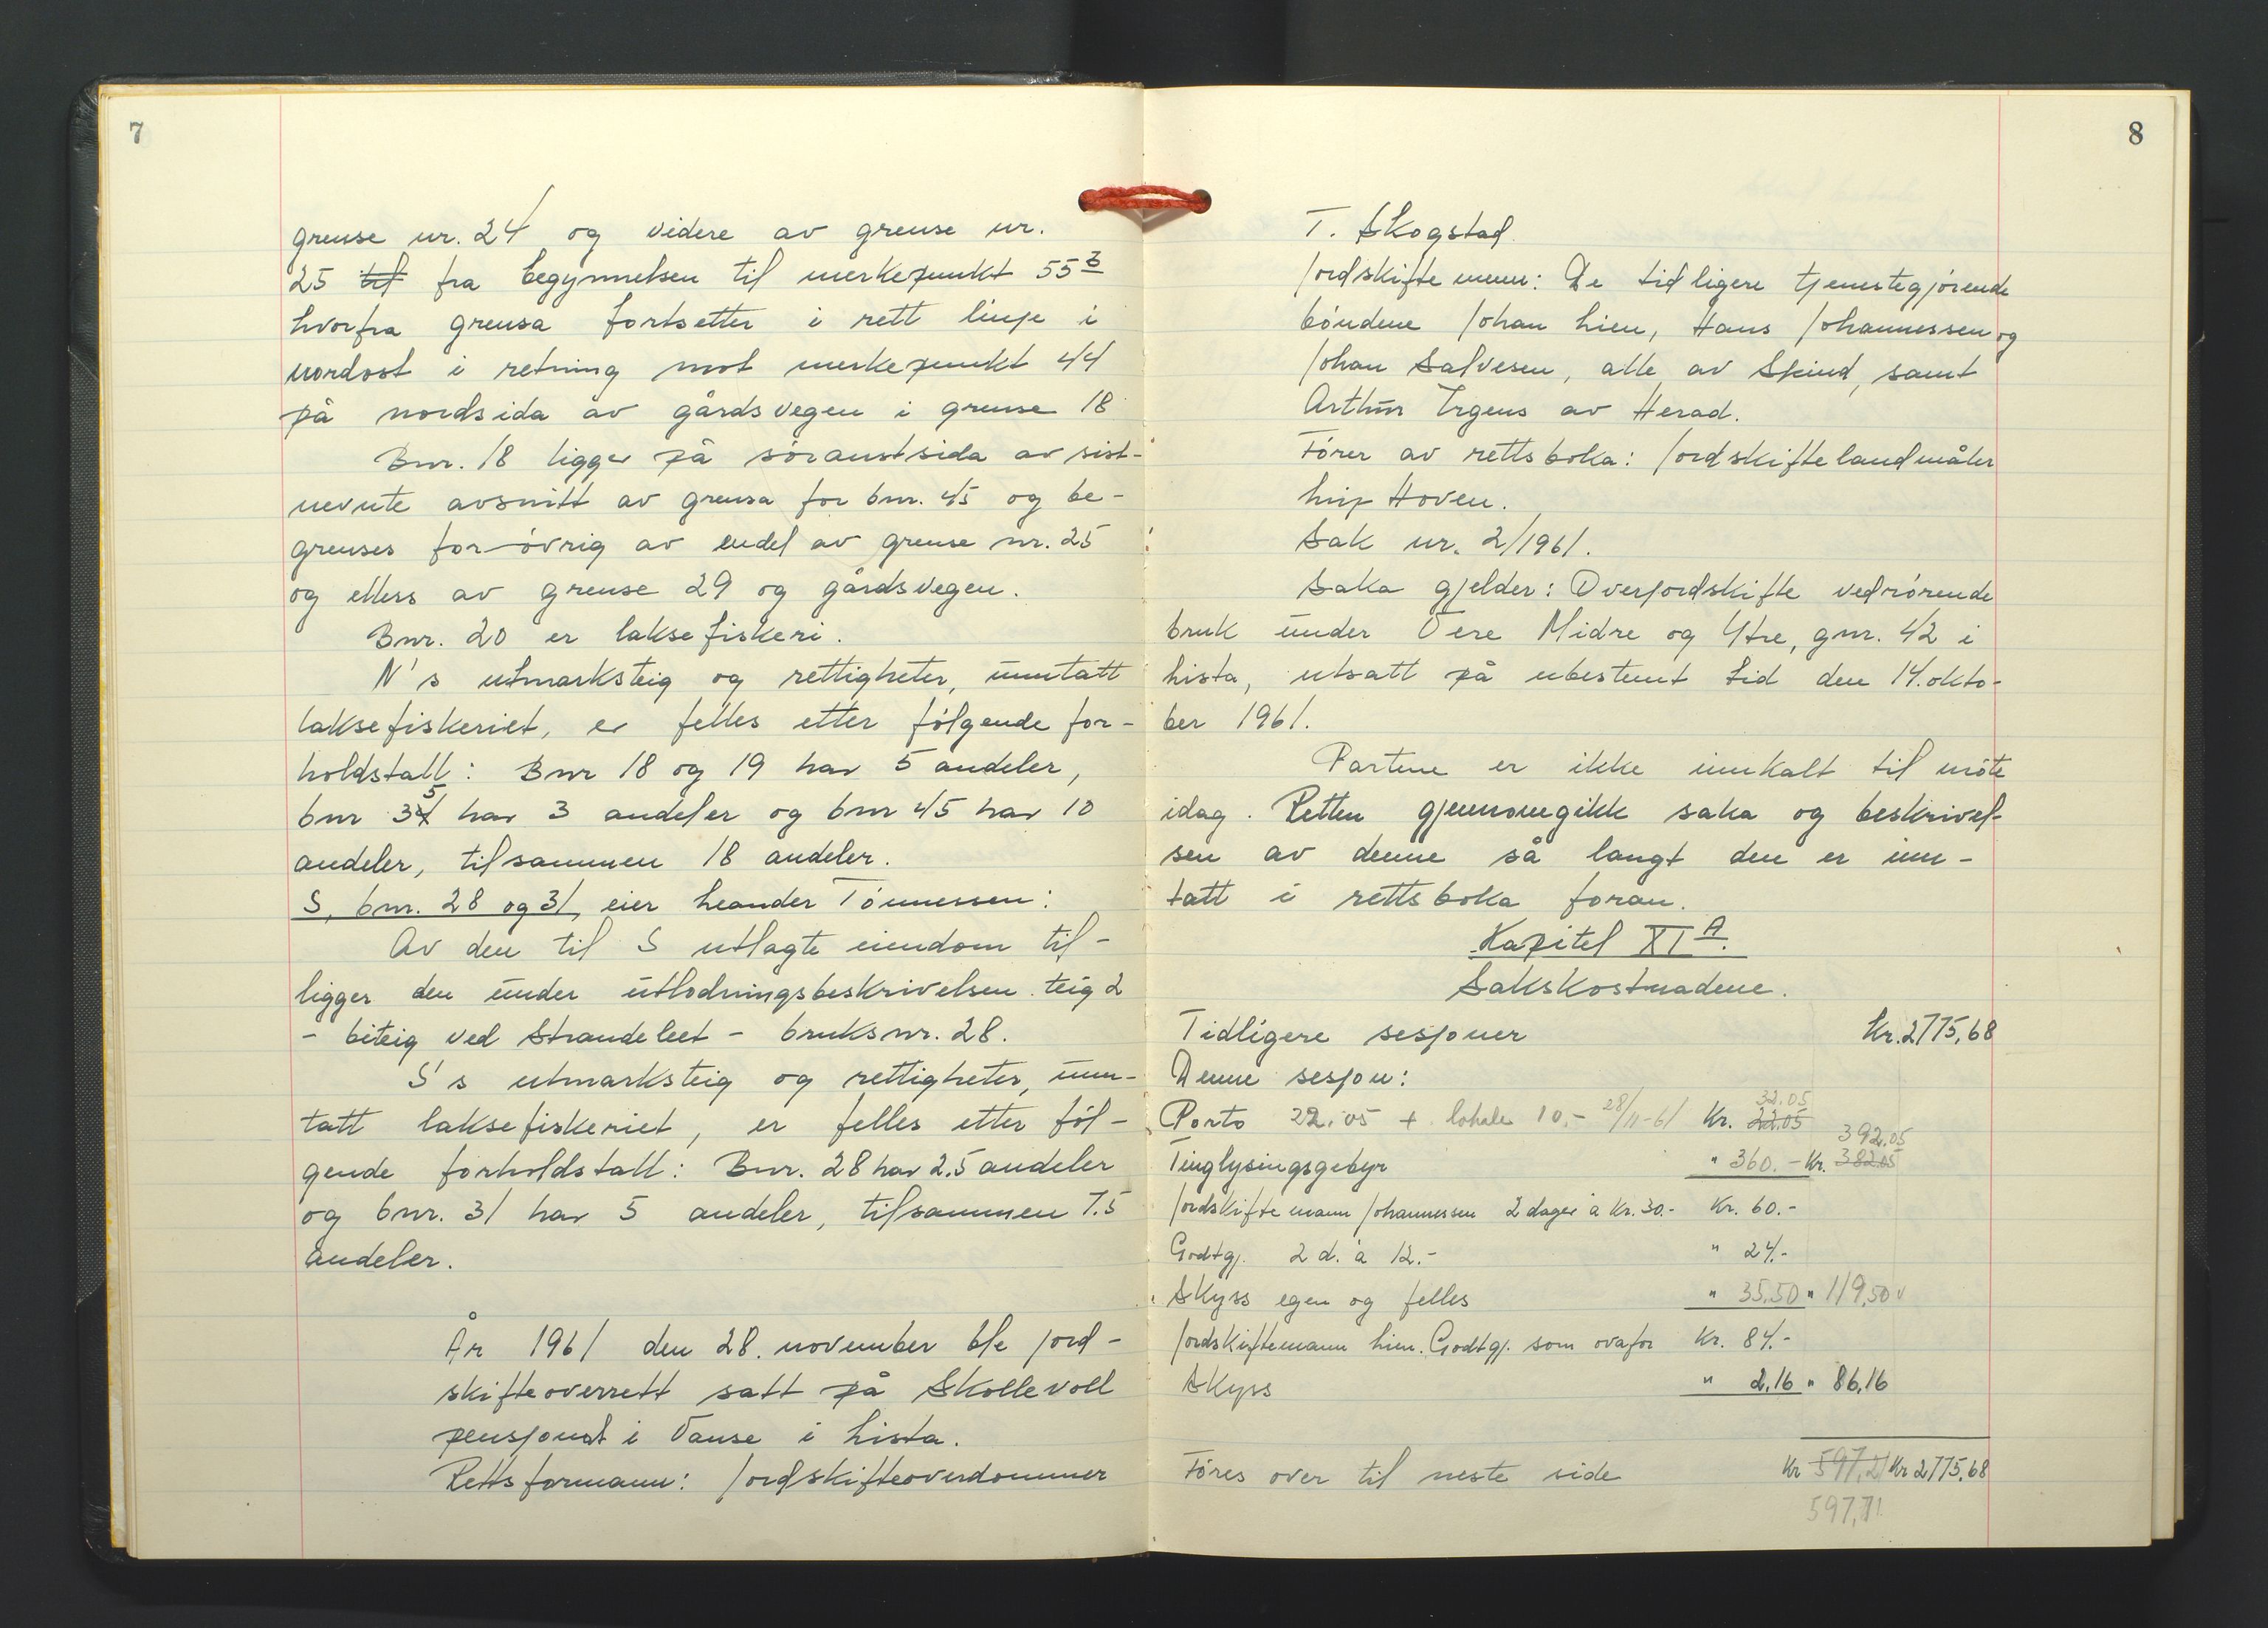 7
grense nr. 24 og videre av grense nr.
25 til fra begynnelsen til merkepunkt 55 3
hvorfra grensa fortsetter i rett linje i
nordost i retning mot merkepunkt 44
på nordsida av gårdsvegen i grense 18
Bnr. 18 ligger på söraustsida av sist-
nevnte avsnitt av grensa for bnr. 45 og be-
grenses for övrig av endel av grense nr. 25
og ellers av grense 29 og gårdsvegen.
Bnr. 20 er laksefiskeri.
N's utmarksteig og rettigheter, unntatt
laksefiskeriet, er felles etter fölgende for-
holdstall: Bnr 18 og 19 har 5 andeler,
bnr 35 har 3 andeler og bnr 45 har 10
andeler, tilsammen 18 andeler.
S, bnr. 28 og 31, eier Leander Tönnessen:
Av den til S utlagte eiendom til-
ligger den under utlodningsbeskrivelsen teig 2
- biteig ved Strandeleet - bruksnr. 28.
S's utmarksteig og rettigheter, unn-
tatt laksefiskeriet, er felles etter föl-
gende forholdstall: Bnr. 28 har 2.5 andeler
og bnr. 31 har 5 andeler, tilsammen 7.5
andeler.
År 1961 den 28. november ble jord-
skifteoverrett satt på Skollevoll
pensjonat i Vanse i Lista.
Rettsformann: Jordskifteoverdommer
8
T. Skogstad.
Jordskiftemenn: De tidligere tjenestegjörende
böndene Johan Lien, Hans Johannessen og
Johan Salvesen, alle av Spind, samt
Arthur Irgens av Herad.
Förer av rettsboka: Jordskiftelandmåler
Leif Hoven.
Sak nr. 2/1961.
Saka gjelder: Overjordskifte vedrörende
bruk under Övre Midre og Ytre, gnr. 42 i
Lista, utsatt på ubestemt tid den 14. okto-
ber 1961.
Partene er ikke innkalt til möte
idag. Retten gjennomgikk saka og beskrivel-
sen av denne så langt den er inn-
tatt i rettsboka foran.
Kapitel XI A.
Sakskostnadene.
Tidligere sesjoner Kr. 2775,68
Denne sesjon:
32.05
Porto 22.05 + lokale 10.- 28/11-61 Kr. 22.05
392.05
Tinglysingsgebyr " 360.- Kr. 382.05
Jordskiftemann Johannessen 2 dager à Kr. 30.- Kr. 60.-
Godtgj. 2 d. à 12.- " 24.-
Skyss egen og felles " 35.50 " 119,50
Jordskiftemann Lien. Godtgj. som ovafor Kr. 84.-
Skyss " 2.16 " 86,16
Föres over til neste side Kr 597,21 Kr 2775,68
597,71